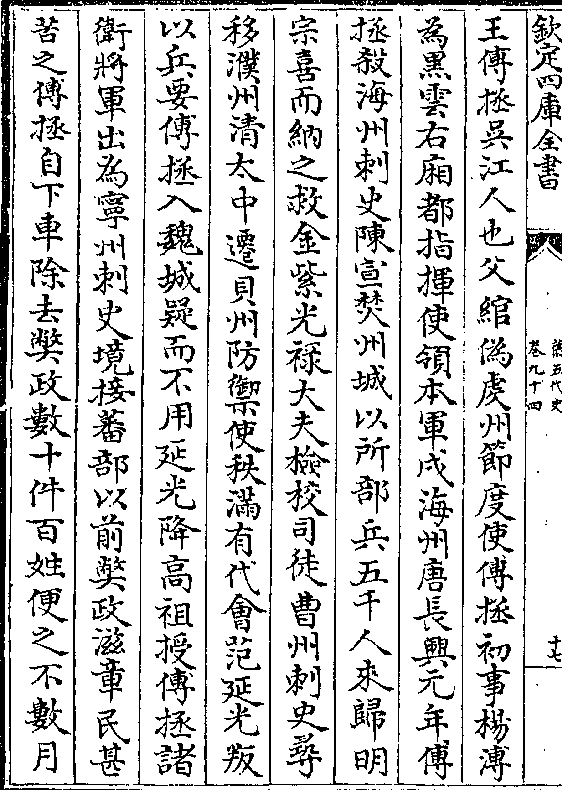 欽定四庫全書
舊五代史
卷九十四
十七
王傅拯吳江人也父綰偽虔州節度使傅拯初事楊溥
為黑雲右廂都指揮使領本軍戍海州唐長興元年傅
拯殺海州刺史陳宣焚州城以所部兵五千人來歸明
宗喜而納之授金紫光祿大夫檢校司徒曹州刺史尋
移濮州清太中遷貝州防禦使秩滿有代會范延光叛
以兵要傅拯入魏城疑而不用延光降高祖授傅拯諸
衛將軍出為寧州刺史境接蕃部以前弊政滋章民甚
苦之傅拯自下車除去弊政數十件百姓便之不數月